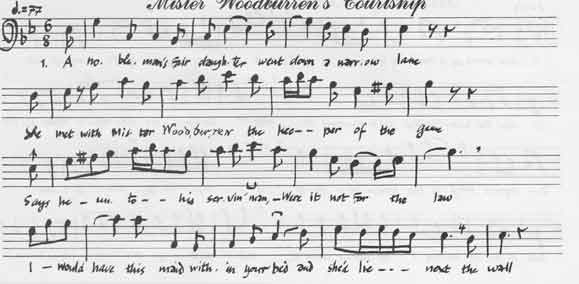 Mister Woodburren's Courtship
♩.=77
6/8
1. A no. ble. man's fair daugh. ter went down a narr. ow lane
She met with Mis ter Woodburren the kee-- per of the game
Says he - un. to -- his ser. vin' man, - Were it not for the law
I - would have this maid with. in your bed and she'd lie --- next the wall